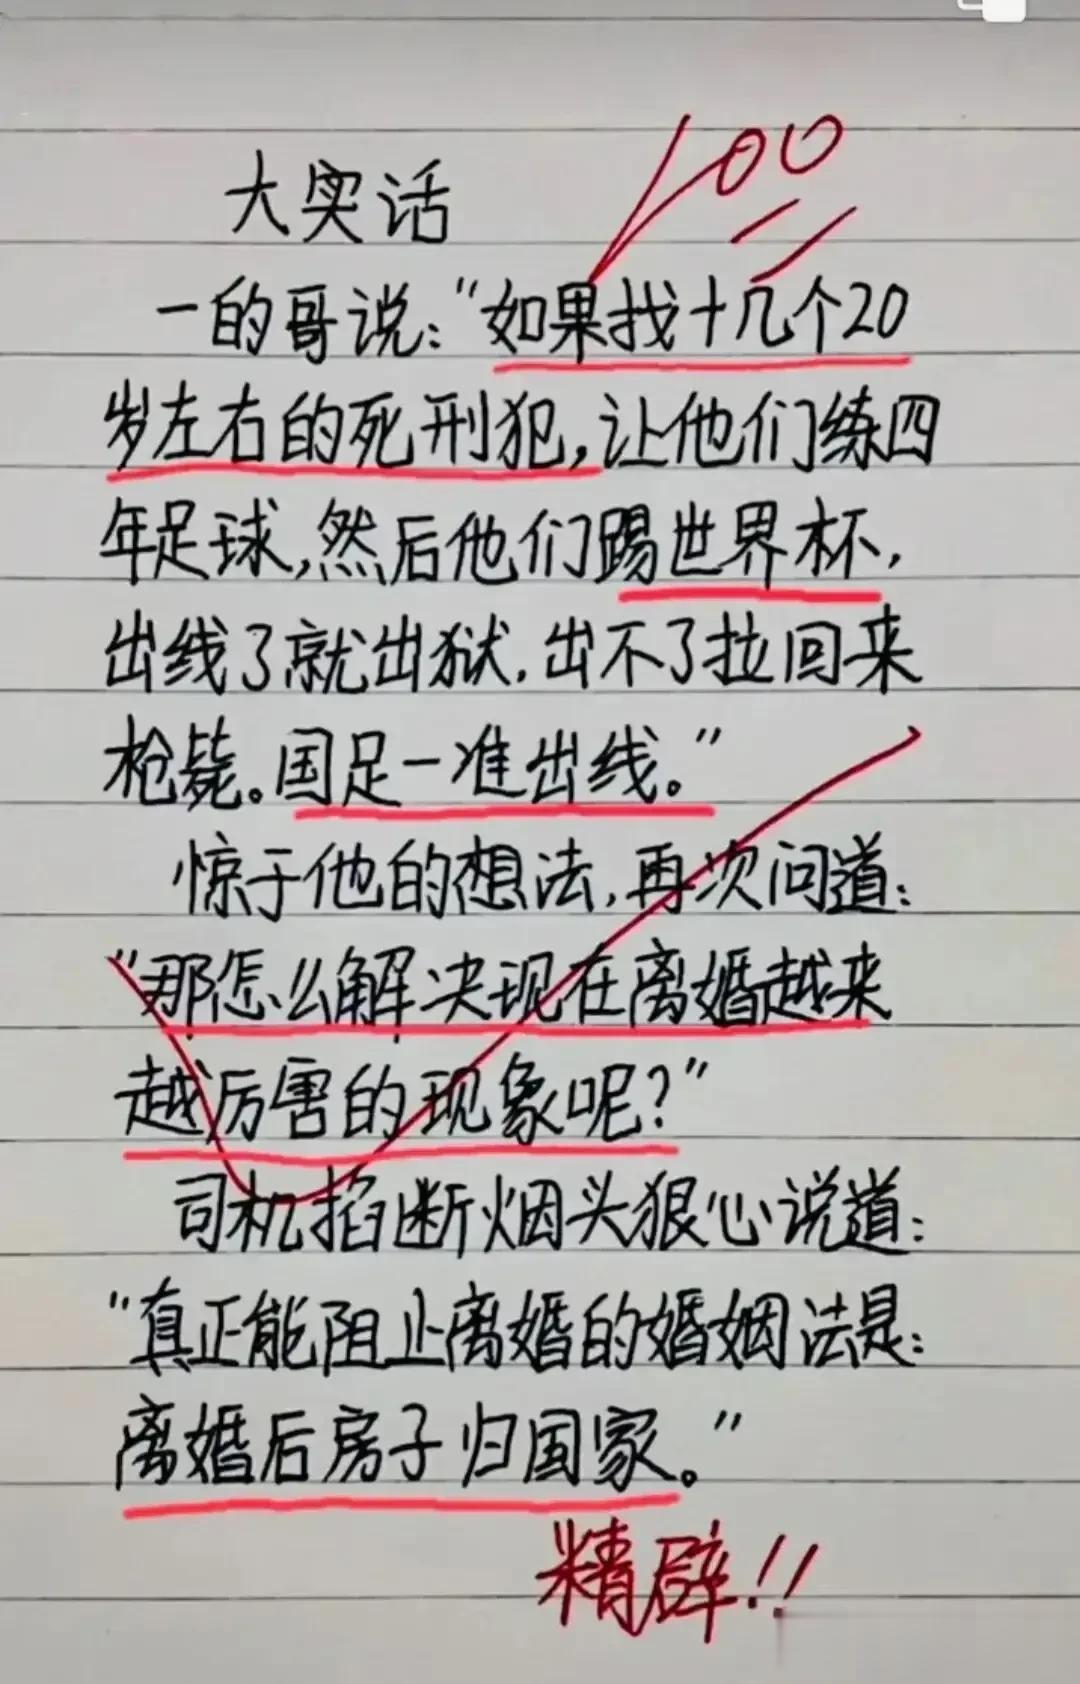 大实话
100
一的哥说：“如果找十几个20
岁左右的死刑犯，让他们练四
年足球，然后他们踢世界杯，
出线了就出狱，出不了拉回来
枪毙。国足一准出线。”
惊于他的想法，再次问道：
“那怎么解决现在离婚越来
越厉害的现象呢？”
司机掐断烟头狠心说道：
“真正能阻止离婚的婚姻法是：
离婚后房子归国家。”
精辟！！